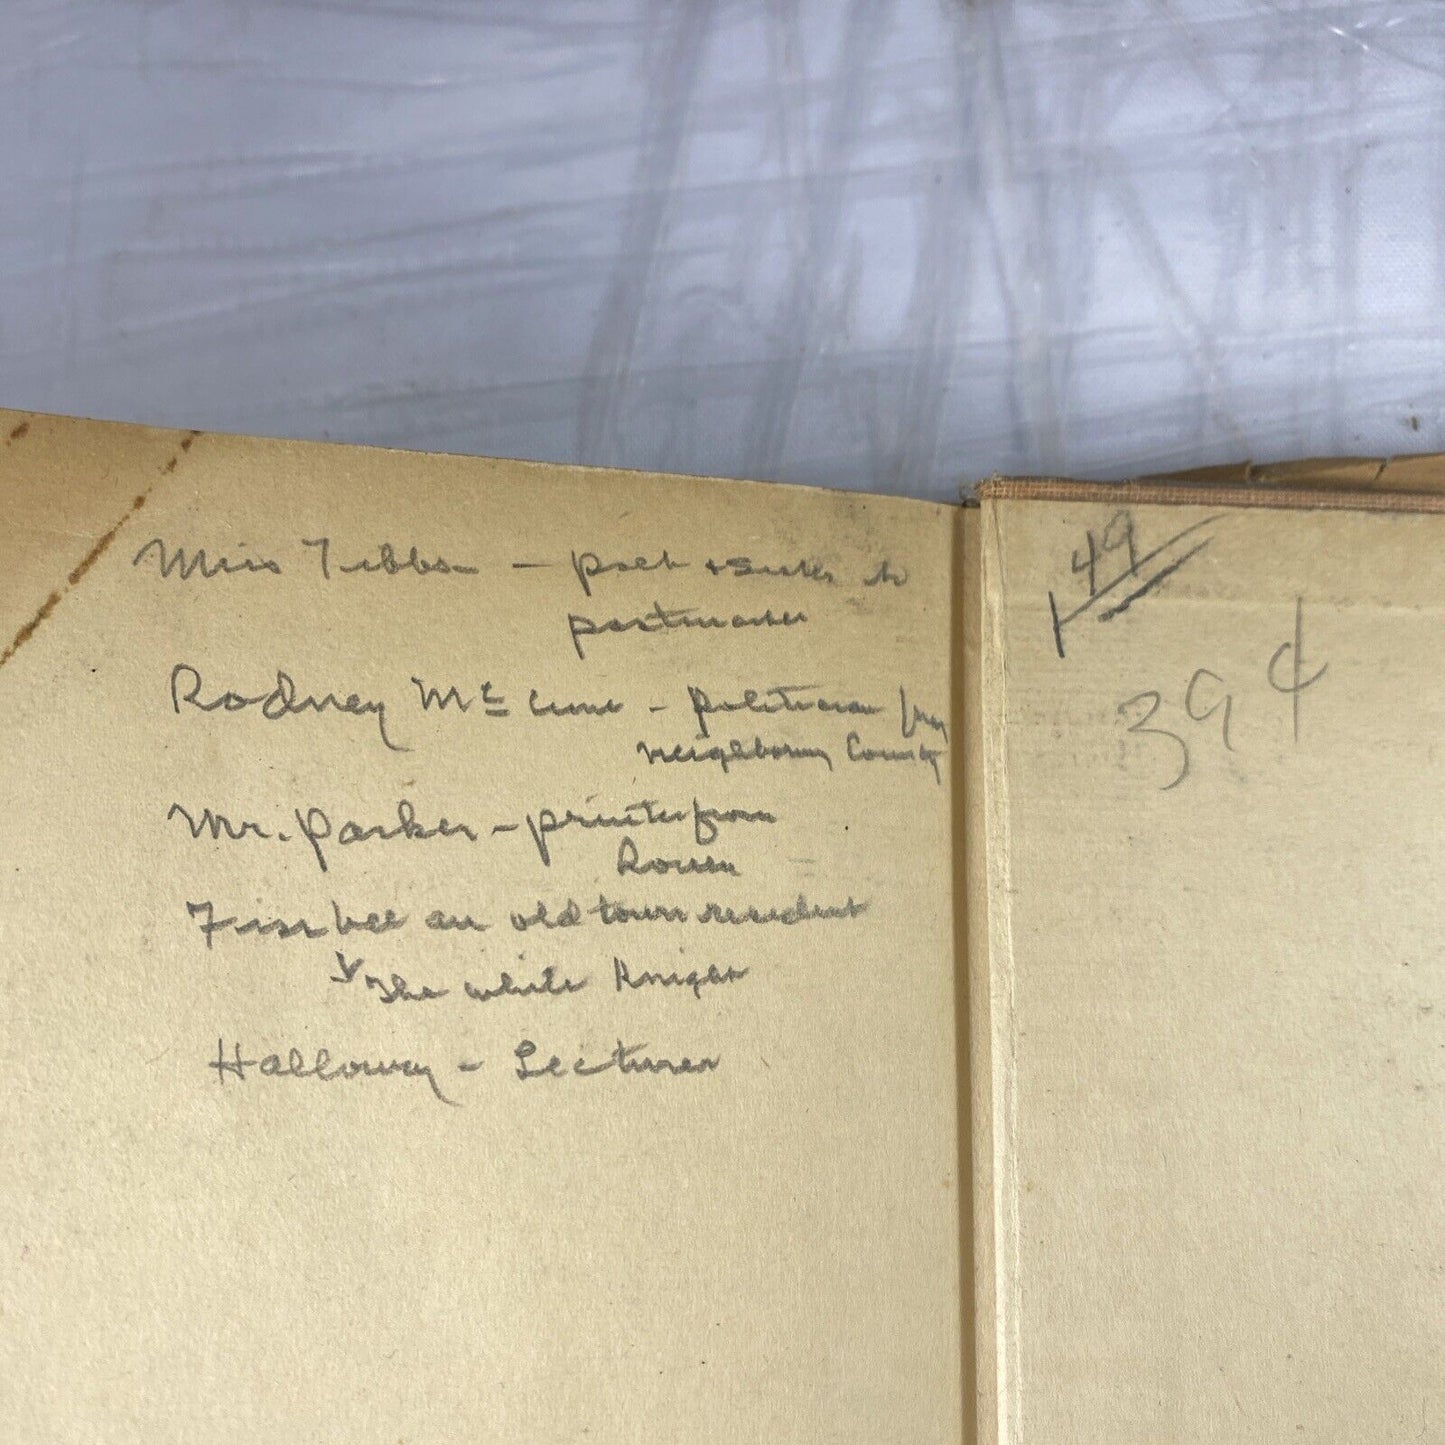 Miss Tibbs - poet + sister to
postmaster
Rodney McCune - politician from
neighboring County
Mr. Parker - printer from
Rouen
Fisbee an old town resident
The White Knight
Halloway - Lecturer
49
39¢